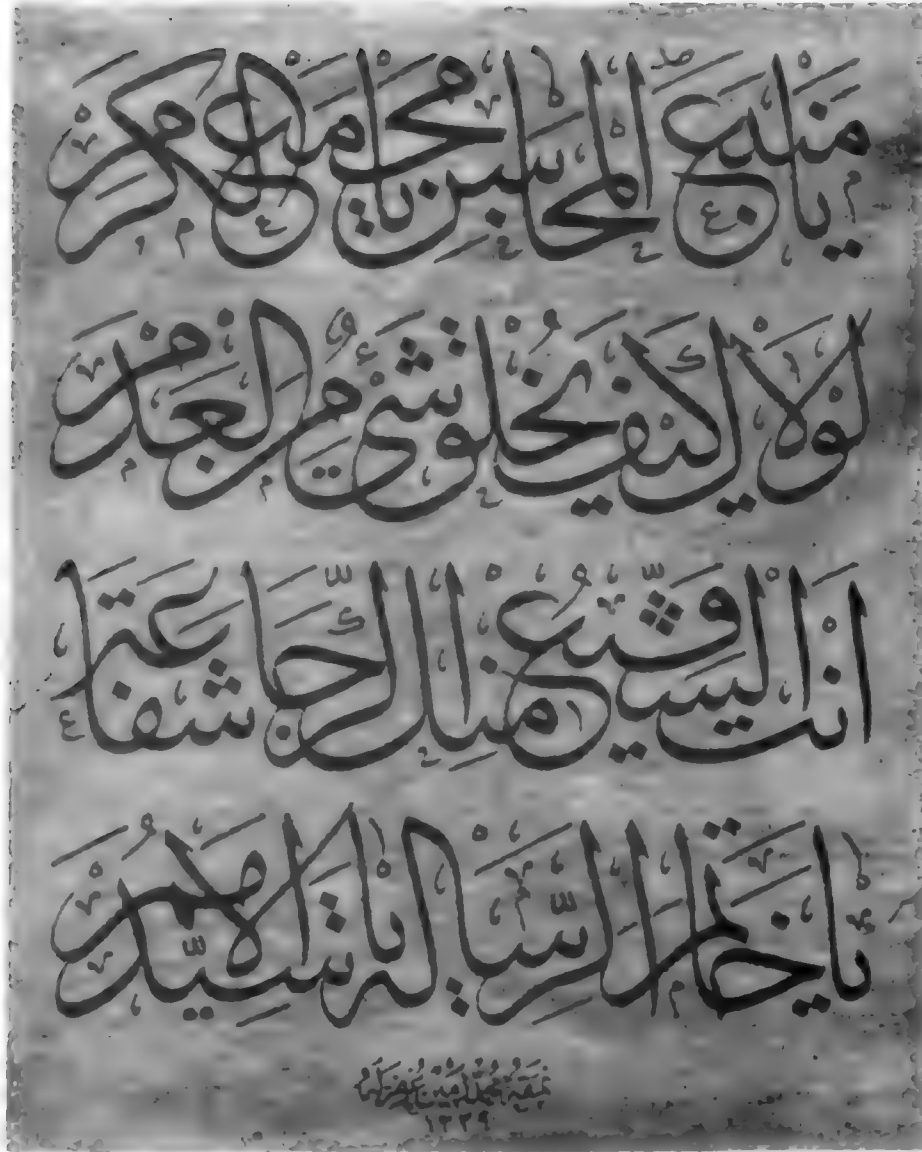 يا منبع المحاسن يا مجمع الكرم
لولاك كيف يخلق شيء من العدم
انت الرجا شفاعة
يا خاتم الرسالة يا سيد الامم
نمقه محمد امين غفر له
١٣٢٩